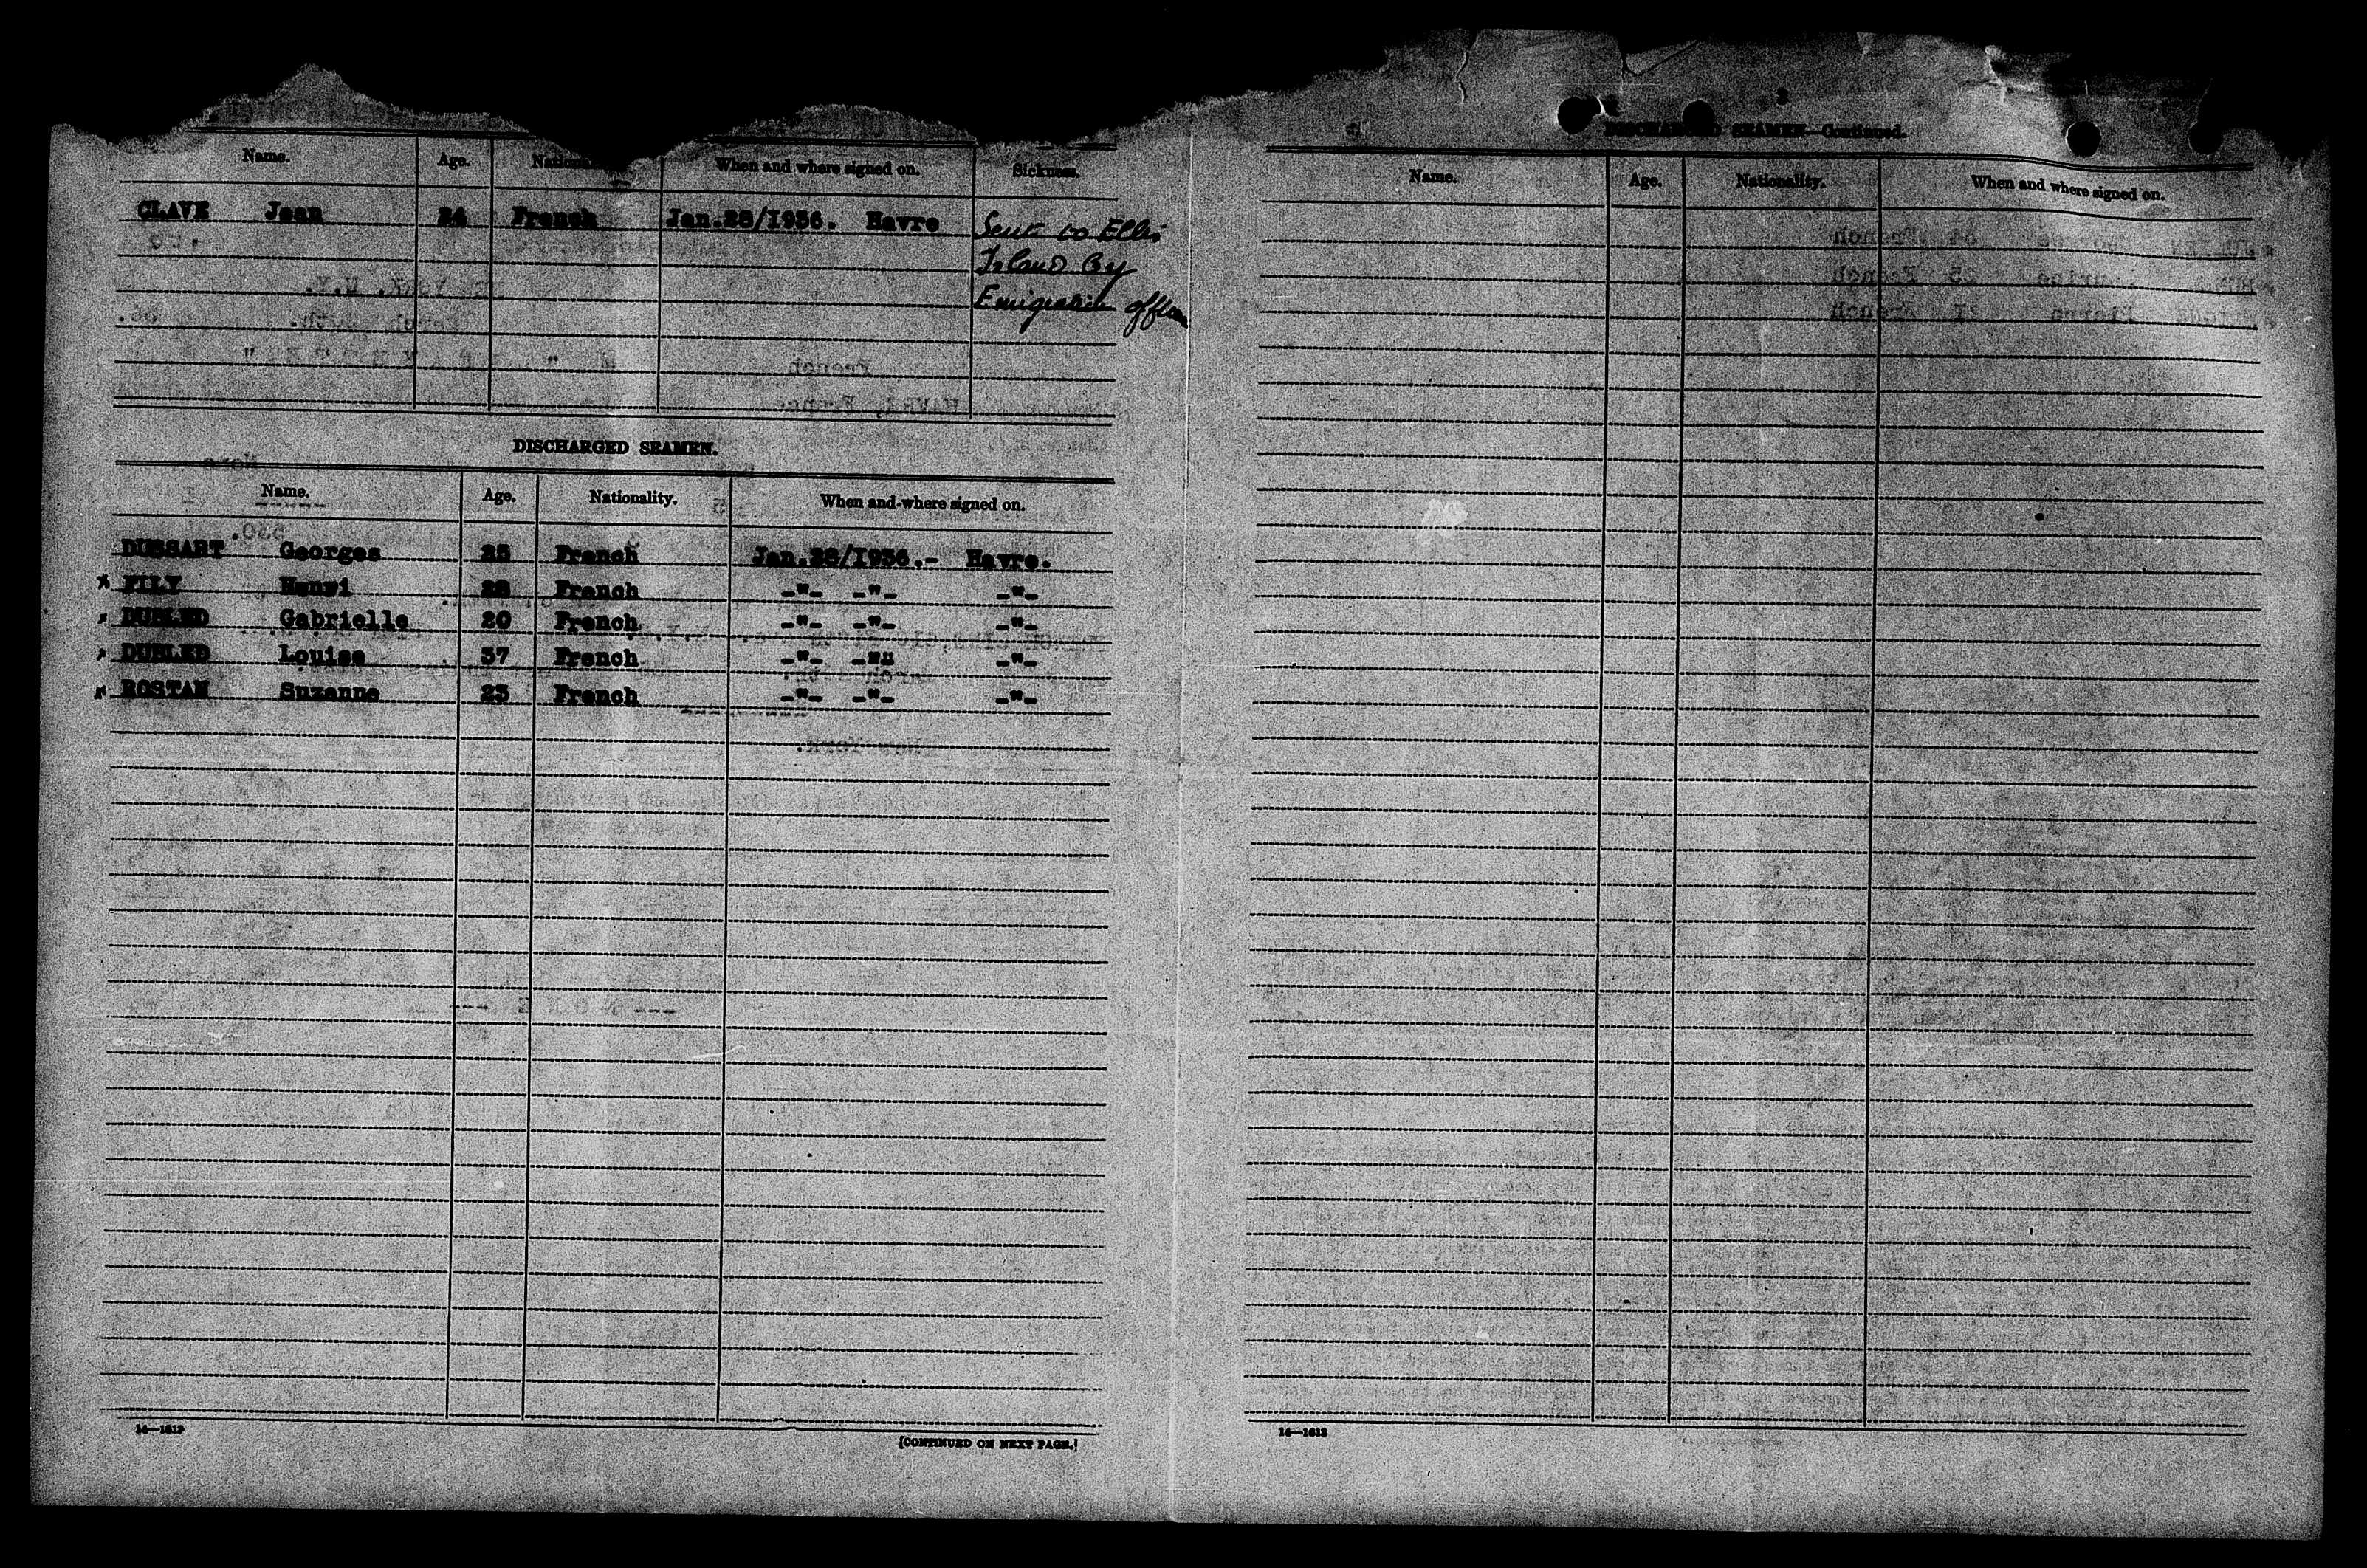 Name. Age. When and where signed on. Sickness.
CLAVE Jean 24 French Jan.28/1936. Havre Sent to Ellis
Island By
Emigration
DISCHARGED SEAMEN.
Name. Age. Nationality. When and where signed on.
DUSSART Georges 25 French Jan.28/1936.- Havre.
x PILY Henri 28 French -"- -"- -"-
x DUBLED Gabrielle 20 French -"- -"- -"-
x DUBLED Louise 37 French -"- -"" -"-
x ROSTAN Suzanne 23 French -"- -"- -"-
14—1613
[CONTINUED ON NEXT PAGE.]
3
DISCHARGED SEAMEN—Continued.
Name. Age. Nationality. When and where signed on.
14—1613